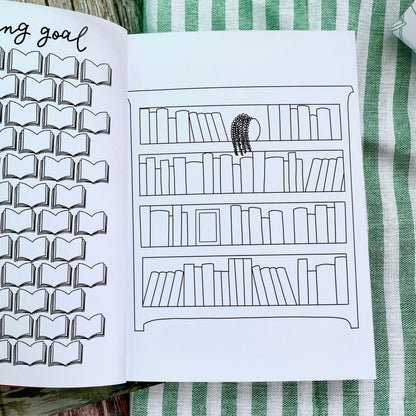 ing goal